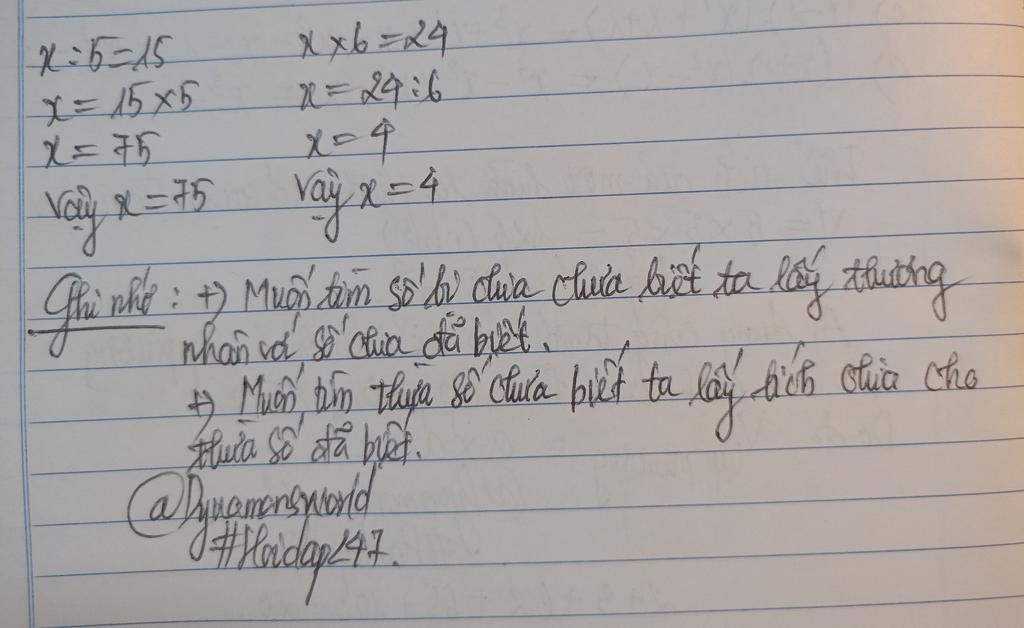 x : 5 = 15
x = 15 x 5
x = 75
Vậy x = 75
x x 6 = 24
x = 24 : 6
x = 4
Vậy x = 4
Ghi nhớ : +) Muốn tìm số bị chia chưa biết ta lấy thương
nhân với số chia đã biết.
+) Muốn tìm thừa số chưa biết ta lấy tích chia cho
thừa số đã biết.
@Dynamonsworld
#Hoidap247.